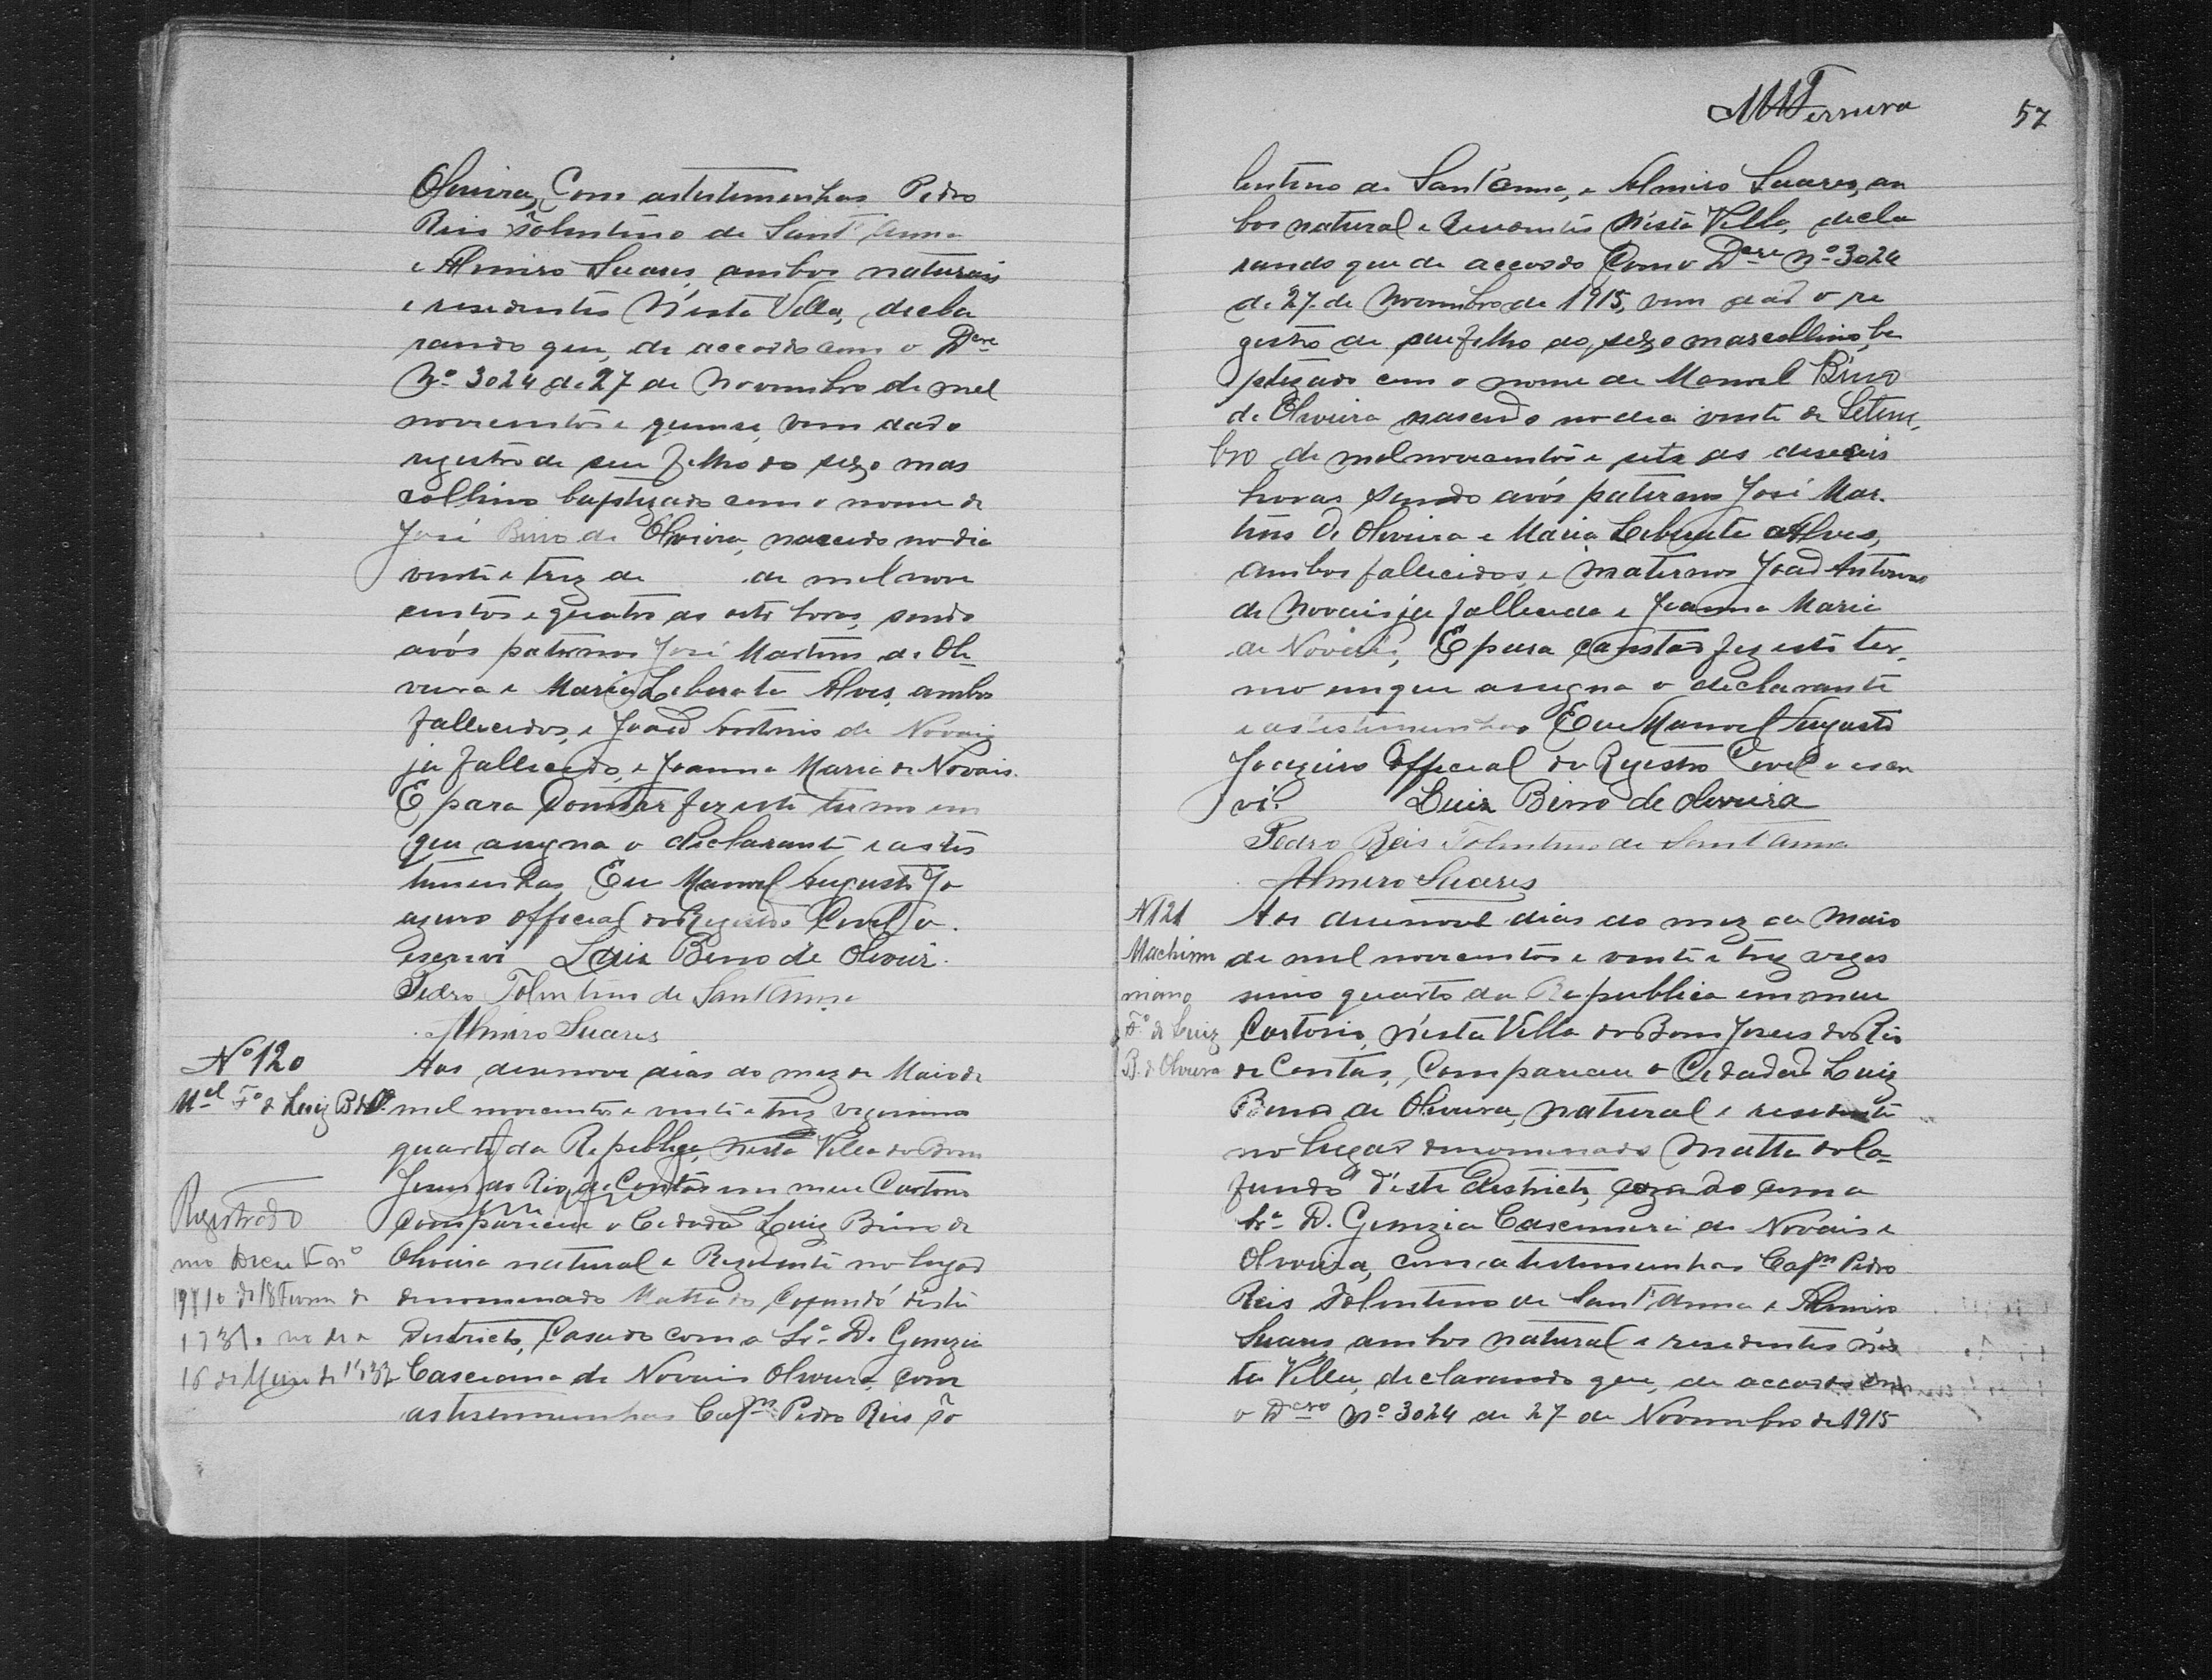 Oliveira, Com as testemunhas Pedro
Reis Tolentino de Sant'Anna
e Almiro Suares, ambos naturais
e residentes N'esta Villa, decla
rando que, de accordo com o Decre
Nº 3024 de 27 de Novembro de mel
novecentos e quinse, vem dar o
registro de seu filho do sexo mas
collino baptisado com o nome de
José Birro de Oliveira, nascido no dia
vinte e trez de de mel nove
centos e quatro as oito horas, sendo
avós paternos José Martins de Oli-
veira e Maria Leberata Alves, ambos
fallecidos, e João Antonio de Novais
ja fallecido, e Joanna Maria de Novais.
E para Constar fez este termo em
que assegna o declarante e as tes
temunhas, Eu Manoel Augusto Jo
azeiro official do Registro Civel o
escrevi Luiz Birro de Oliveir.
Pedro Tolentino de Sant'Anna
Almiro Suares
Nº 120
Mel Fº de Luiz B de Olª
Aos desenove dias do mez de Maio de
mel novecentos e vinte e trez vigesimo
quarto da Republica, nesta Villa do Bom
Jesus do Rio de Contas em meu Cartorio
Compareceu o Cidadão Luiz Birro de
Oliveira natural e Rezidente no lugar
denominado Matta do Cafundó d'este
Districto, Casado com a Srª D. Genezia
Casemira de Novais Oliveira, com
as tesemmunhas Capm Pedro Reis To
Registrado
no Decreto nº
19710 de 18 Fever de
1931. no dia
16 de Maio de 1932
MMFerreira
57
lentino de Sant'Anna, e Almiro Suares, am
bos natural e residentes N'esta Villa, decla
rando que de accordo Com o Decre Nº 3024
de 27 de Novembro de 1915, vem dar o re
gistro de seu filho do sexo mascollino, ba
ptisado com o nome de Manoel Birro
de Oliveira nascido no dia vinte de Setem
bro de mel novecentos e sete as deseseis
horas sendo avós paternos José Mar-
tins de Oliveira e Maria Leberata Alves,
ambos fallecidos, e maternos João Antonio
de Novais ja fallecido e Joanna Maria
de Novais, E para constar fez este ter-
mo em que assegna o declarante
e as testemunhas Eu Manoel Augusto
Joazeiro Official do Registro Civel o escre
vi. Luiz Birro de Oliveira
Pedro Reis Tolentino de Sant'Anna
Almiro Suares
N 121
Machimi
niano
Fº de Luiz
B. de Oliveira
Aos desenove dias do mez de Maio
de mel novecentos e vinte e trez veges
simo quarto da Republica em meu
Cartorio, n'esta Villa do Bom Jesus do Rio
de Contas, Compareceu o Cidadão Luiz
Birro de Oliveira, natural e residente
no lugar denominado Matta do Ca-
fundó d'este Districto, cazado com a
Srª D. Genezia Casemira de Novais e
Oliveira, com as testemunhas Capm Pedro
Reis Tolentino de Sant'Anna e Almiro
Suares ambos natural e residentes n'es
ta Villa, declarando que, de accordo com
o Decro Nº 3024 de 27 de Novembro de 1915